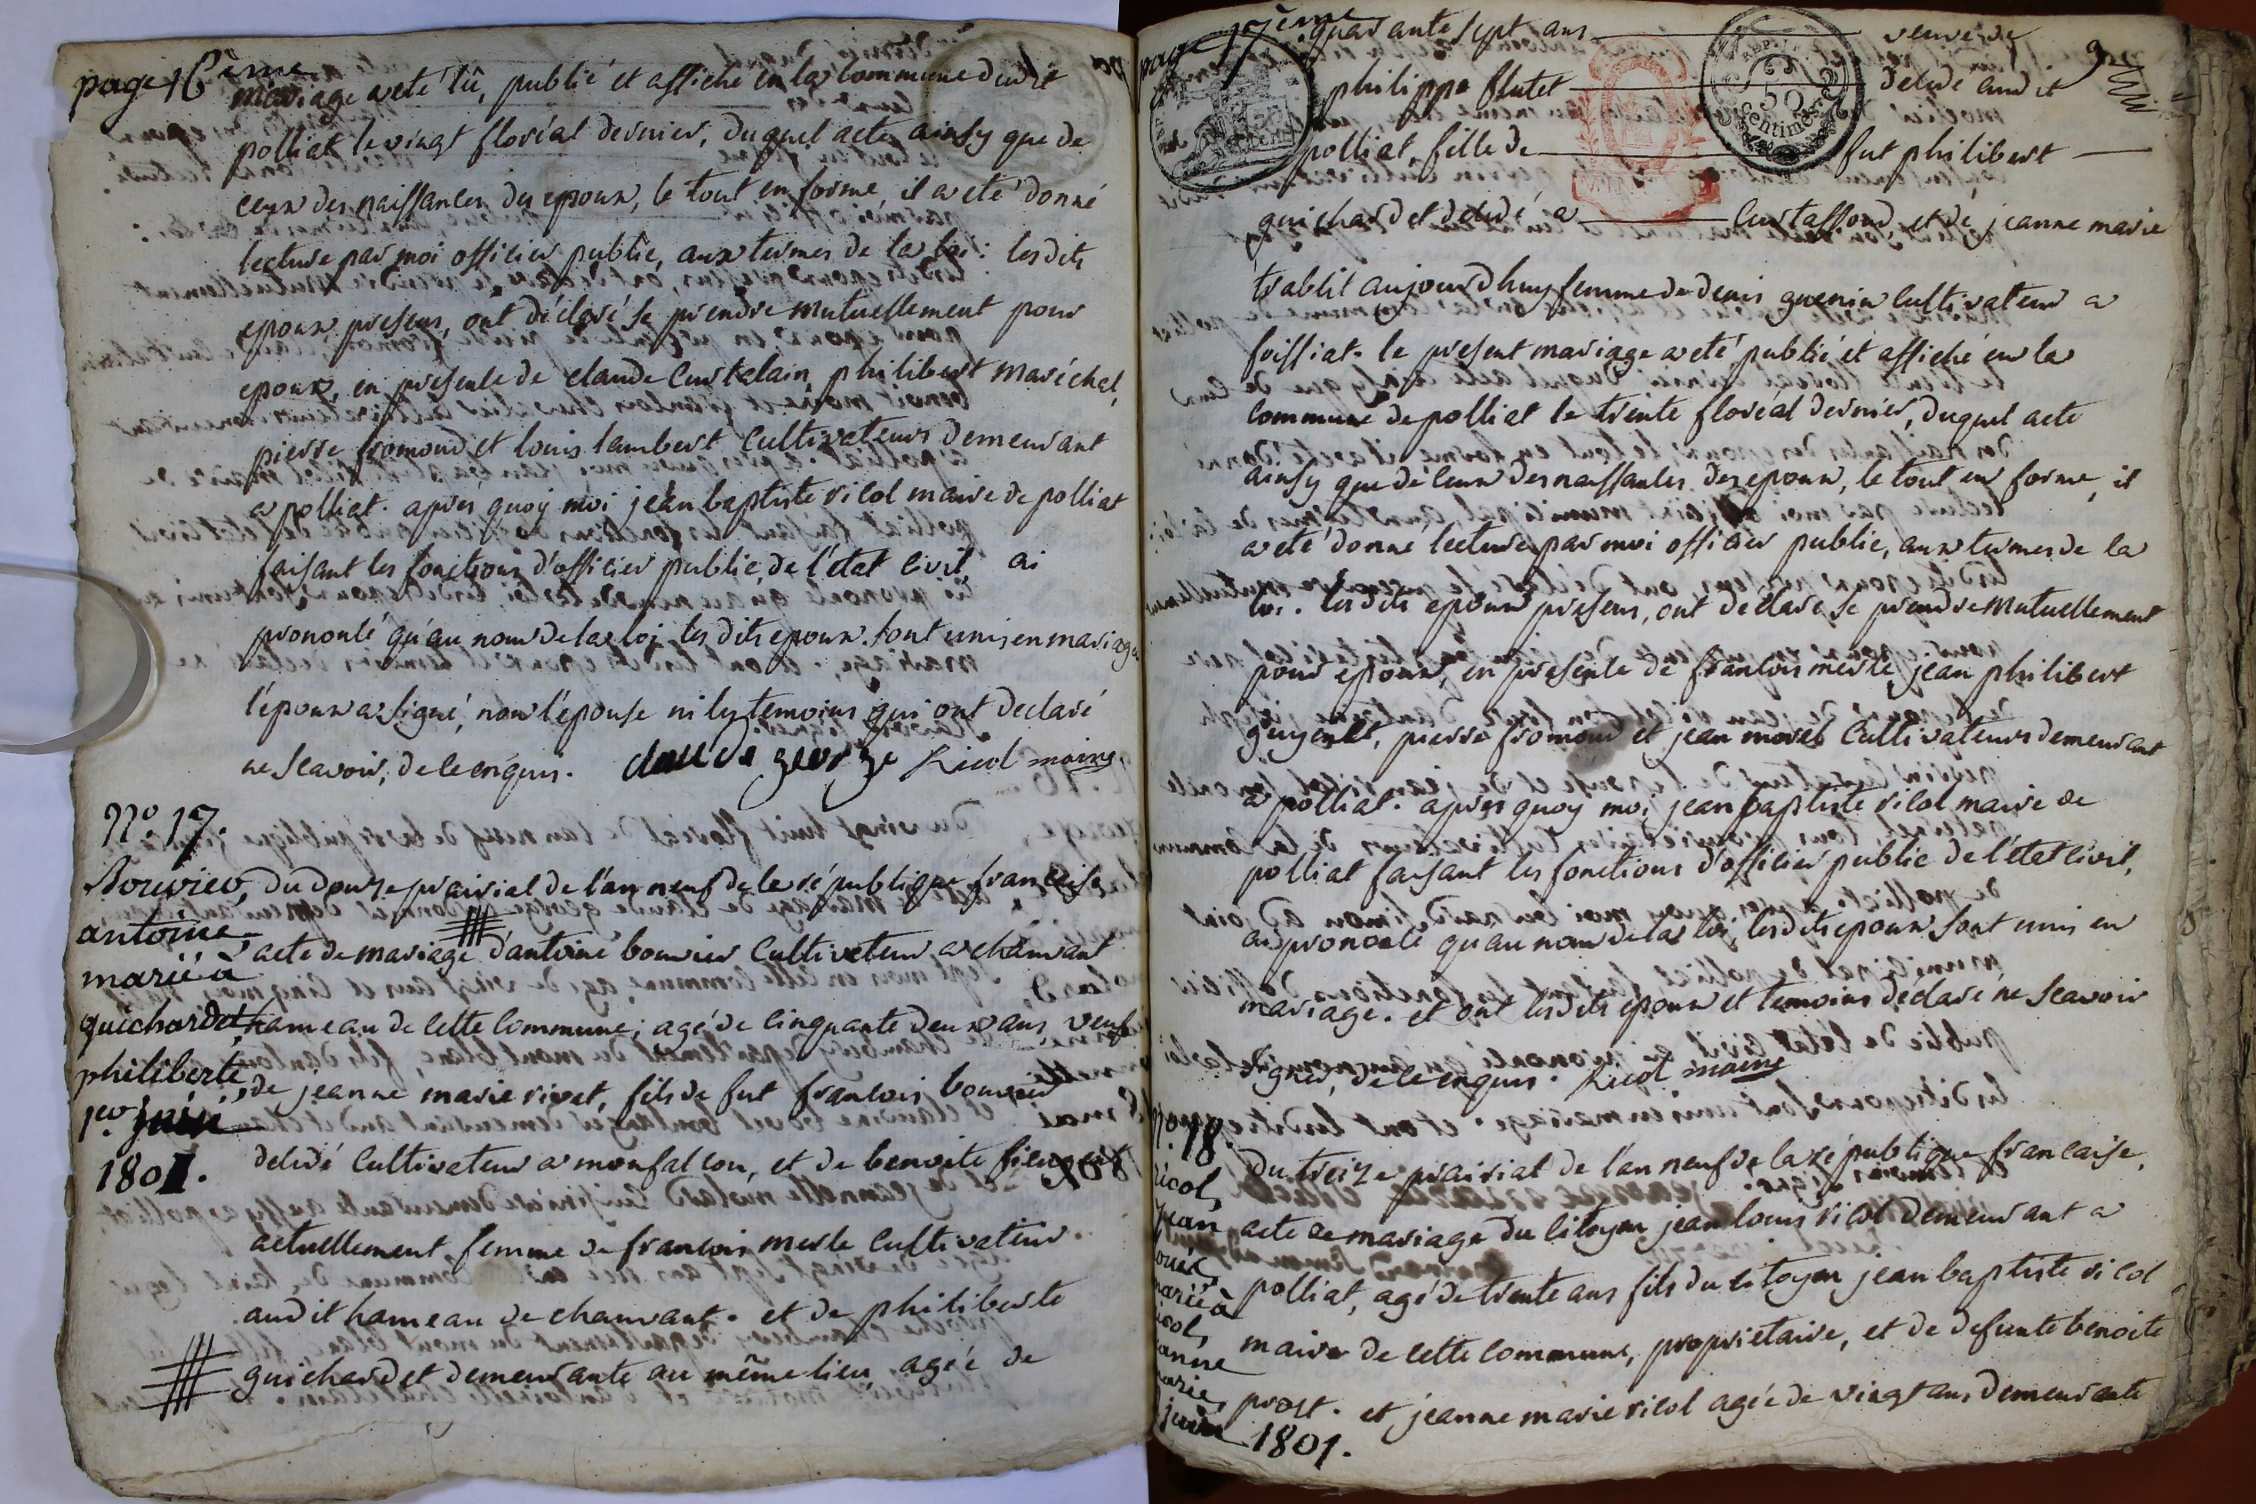 page 16ème
mariage a eté lû, publié et affiché en la commune dudit
polliat le vingt floréal dernier, duquel acte ainsy que de
ceux des naissances des epoux, le tout en forme, il a eté donné
lecture par moi officier public, aux termes de la loi : lesdits
epoux presens, ont déclaré se prendre mutuellement pour
epoux, en presence de claude Curtelain, philibert maréchal,
pierre fromond et louis lambert Cultivateurs demeurant
a polliat. aprés quoy moi jean baptiste ricol maire de polliat
faisant les fonctions d'officier public de l'état Civil, ai
prononcé qu'au nom de la loi, les dits epoux sont unis en mariage
l'époux a signé, non l'épouse ni les temoins qui ont declaré
ne scavoir, de ce enquis. claude george Ricol maire
N° 17.
Bouvier
antoine
marié à
guichardet,
philiberte,
1er juin
1801.
du douze prairial de l'an neuf de la république française
acte de mariage d'antoine bouvier Cultivateur a chanvant
hameau de cette Commune, agé de cinquante deux ans, veuf
de jeanne marie rivet, fils de fut françois bouvier
dcdé Cultivateur a monfalcon, et de benoite
actuellement femme de françois merle Cultivateur
audit hameau de chanvant. et de philiberte
guichardet demeurante au même lieu, agée de
page 17ème
quarante sept ans veuve de
philippe flutet dcdé audit
polliat, fille de fut philibert
guichardet dcdé a Curtaffond, et de jeanne marie
trablit aujourd'huy femme de denis guenin Cultivateur a
foissiat. le present mariage a eté publié et affiché en la
commune de polliat le trente floréal dernier, duquel acte
ainsy que de ceux des naissances des epoux, le tout en forme, il
a eté donné lecture par moi officier public, aux termes de la
loi. les dits epoux presens, ont déclaré se prendre mutuellement
pour epoux, en presence de francois merle, jean philibert
guyenet, pierre fromond et jean morel Cultivateurs demeurant
a polliat. aprés quoy moi jean baptiste ricol maire de
polliat faisant les fonctions d'officier public de l'état Civil,
ai prononcé qu'au nom de la loi, lesdits epoux sont unis en
mariage. et ont lesdits epoux et temoins déclaré ne scavoir
signer, de ce enquis. Ricol maire
n° 18.
ricol,
jean
louis
marié à
ricol,
jeanne
marie,
2 juin 1801.
du treize prairial de l'an neuf de la république francaise.
acte de mariage du citoyen jean louis ricol demeurant a
polliat, agé de trente ans fils du citoyen jean baptiste ricol
maire de cette Commune, propriétaire, et de defunte benoite
prost. et jeanne marie ricol agée de vingt ans demeurante
50
centimes